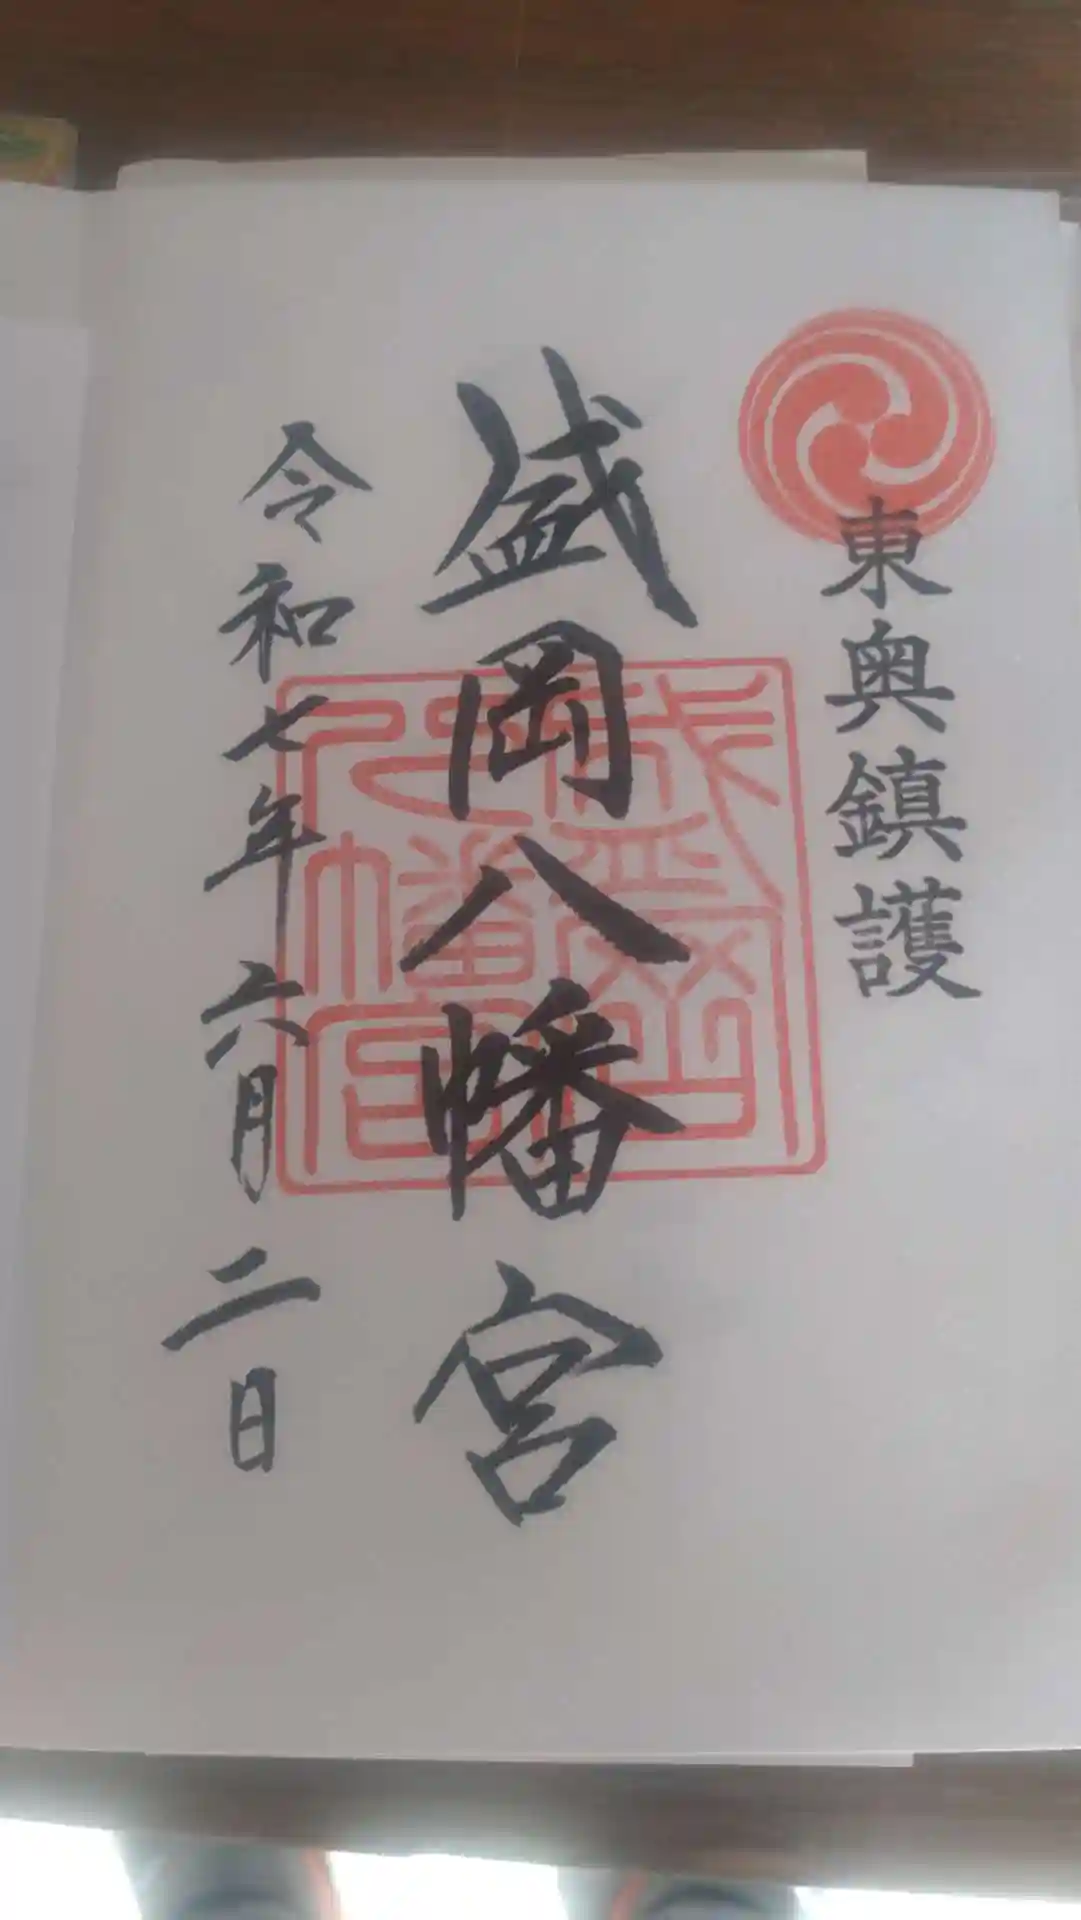 東奥鎮護
盛岡八幡宮
令和七年六月二日
盛岡八幡宮